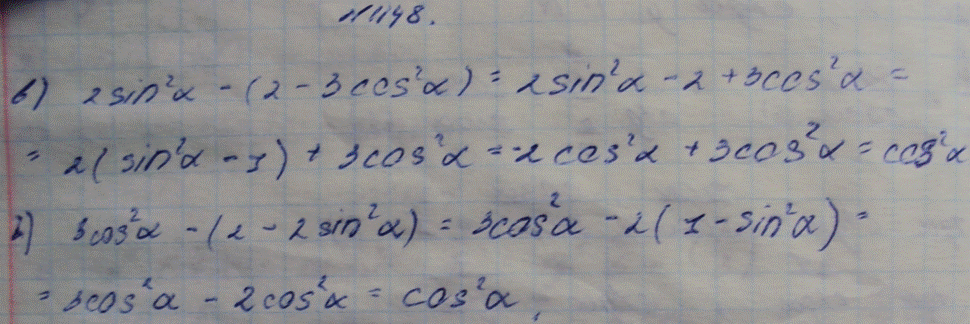 №1148.
в) 2sin²α - (2 - 3cos²α) = 2sin²α - 2 + 3cos²α =
= 2(sin²α - 1) + 3cos²α = -2cos²α + 3cos²α = cos²α
г) 3cos²α - (2 - 2sin²α) = 3cos²α - 2(1 - sin²α) =
= 3cos²α - 2cos²α = cos²α,